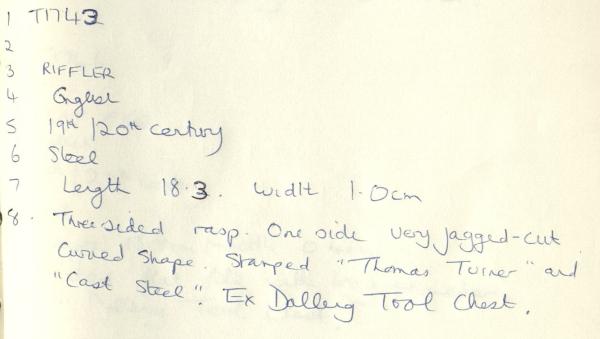 1 T1743
2
3 RIFFLER
4 English
5 19th/20th century
6 Steel
7 Length 18.3. Width 1.0cm
8. Three sided rasp. One side very jagged-cut
Curved shape. Stamped "Thomas Turner" and
"Cast Steel". Ex Tool Chest.